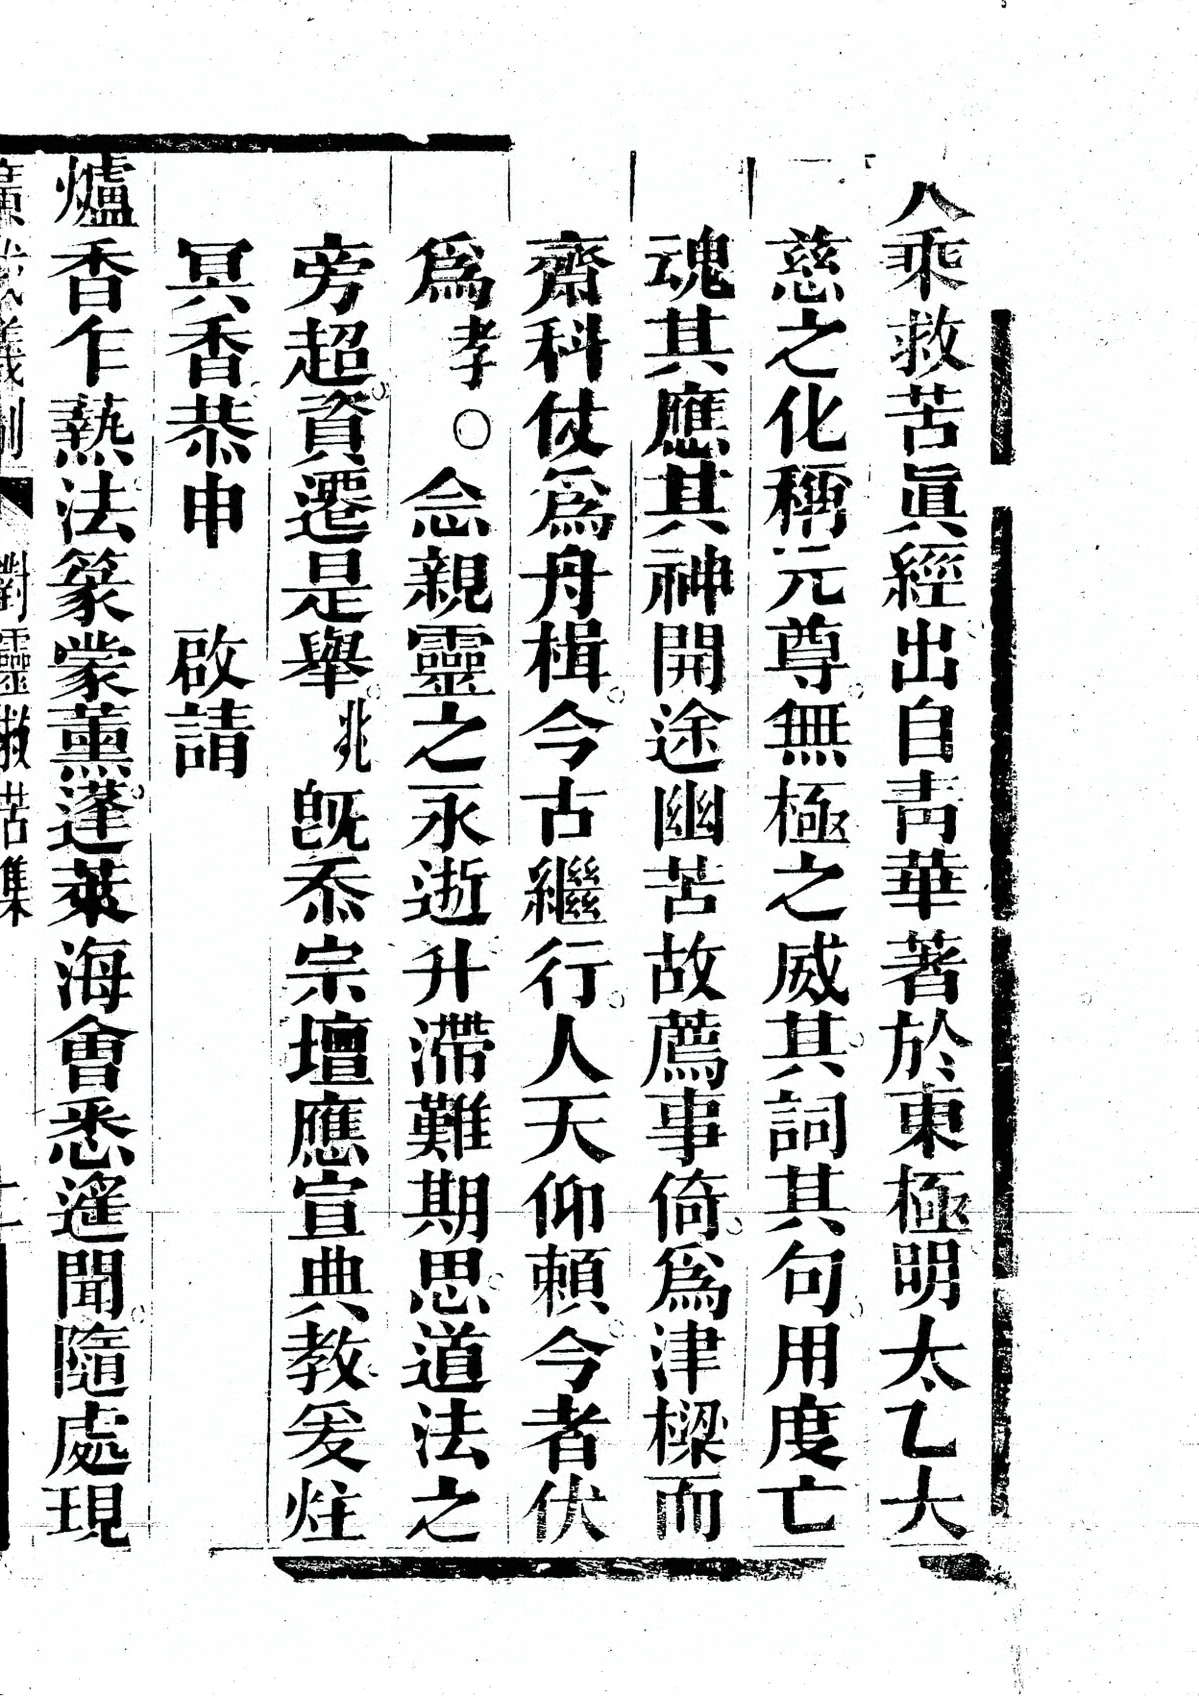 大乘救苦眞經出自青華著於東極明太乙大
慈之化稱元尊無極之威其詞其句用度亡
魂其應其神開途幽苦故薦事倚爲津樑而
齋科仗爲舟楫今古繼行人天仰賴今者伏
爲孝○念親靈之永逝升滯難期思道法之
旁超資遷是舉兆旣忝宗壇應宣典教爰炷
冥香恭申　啟請
爐香乍爇法篆蒙薰蓬萊海會悉遙聞隨處現
廣成儀制　對靈救苦集